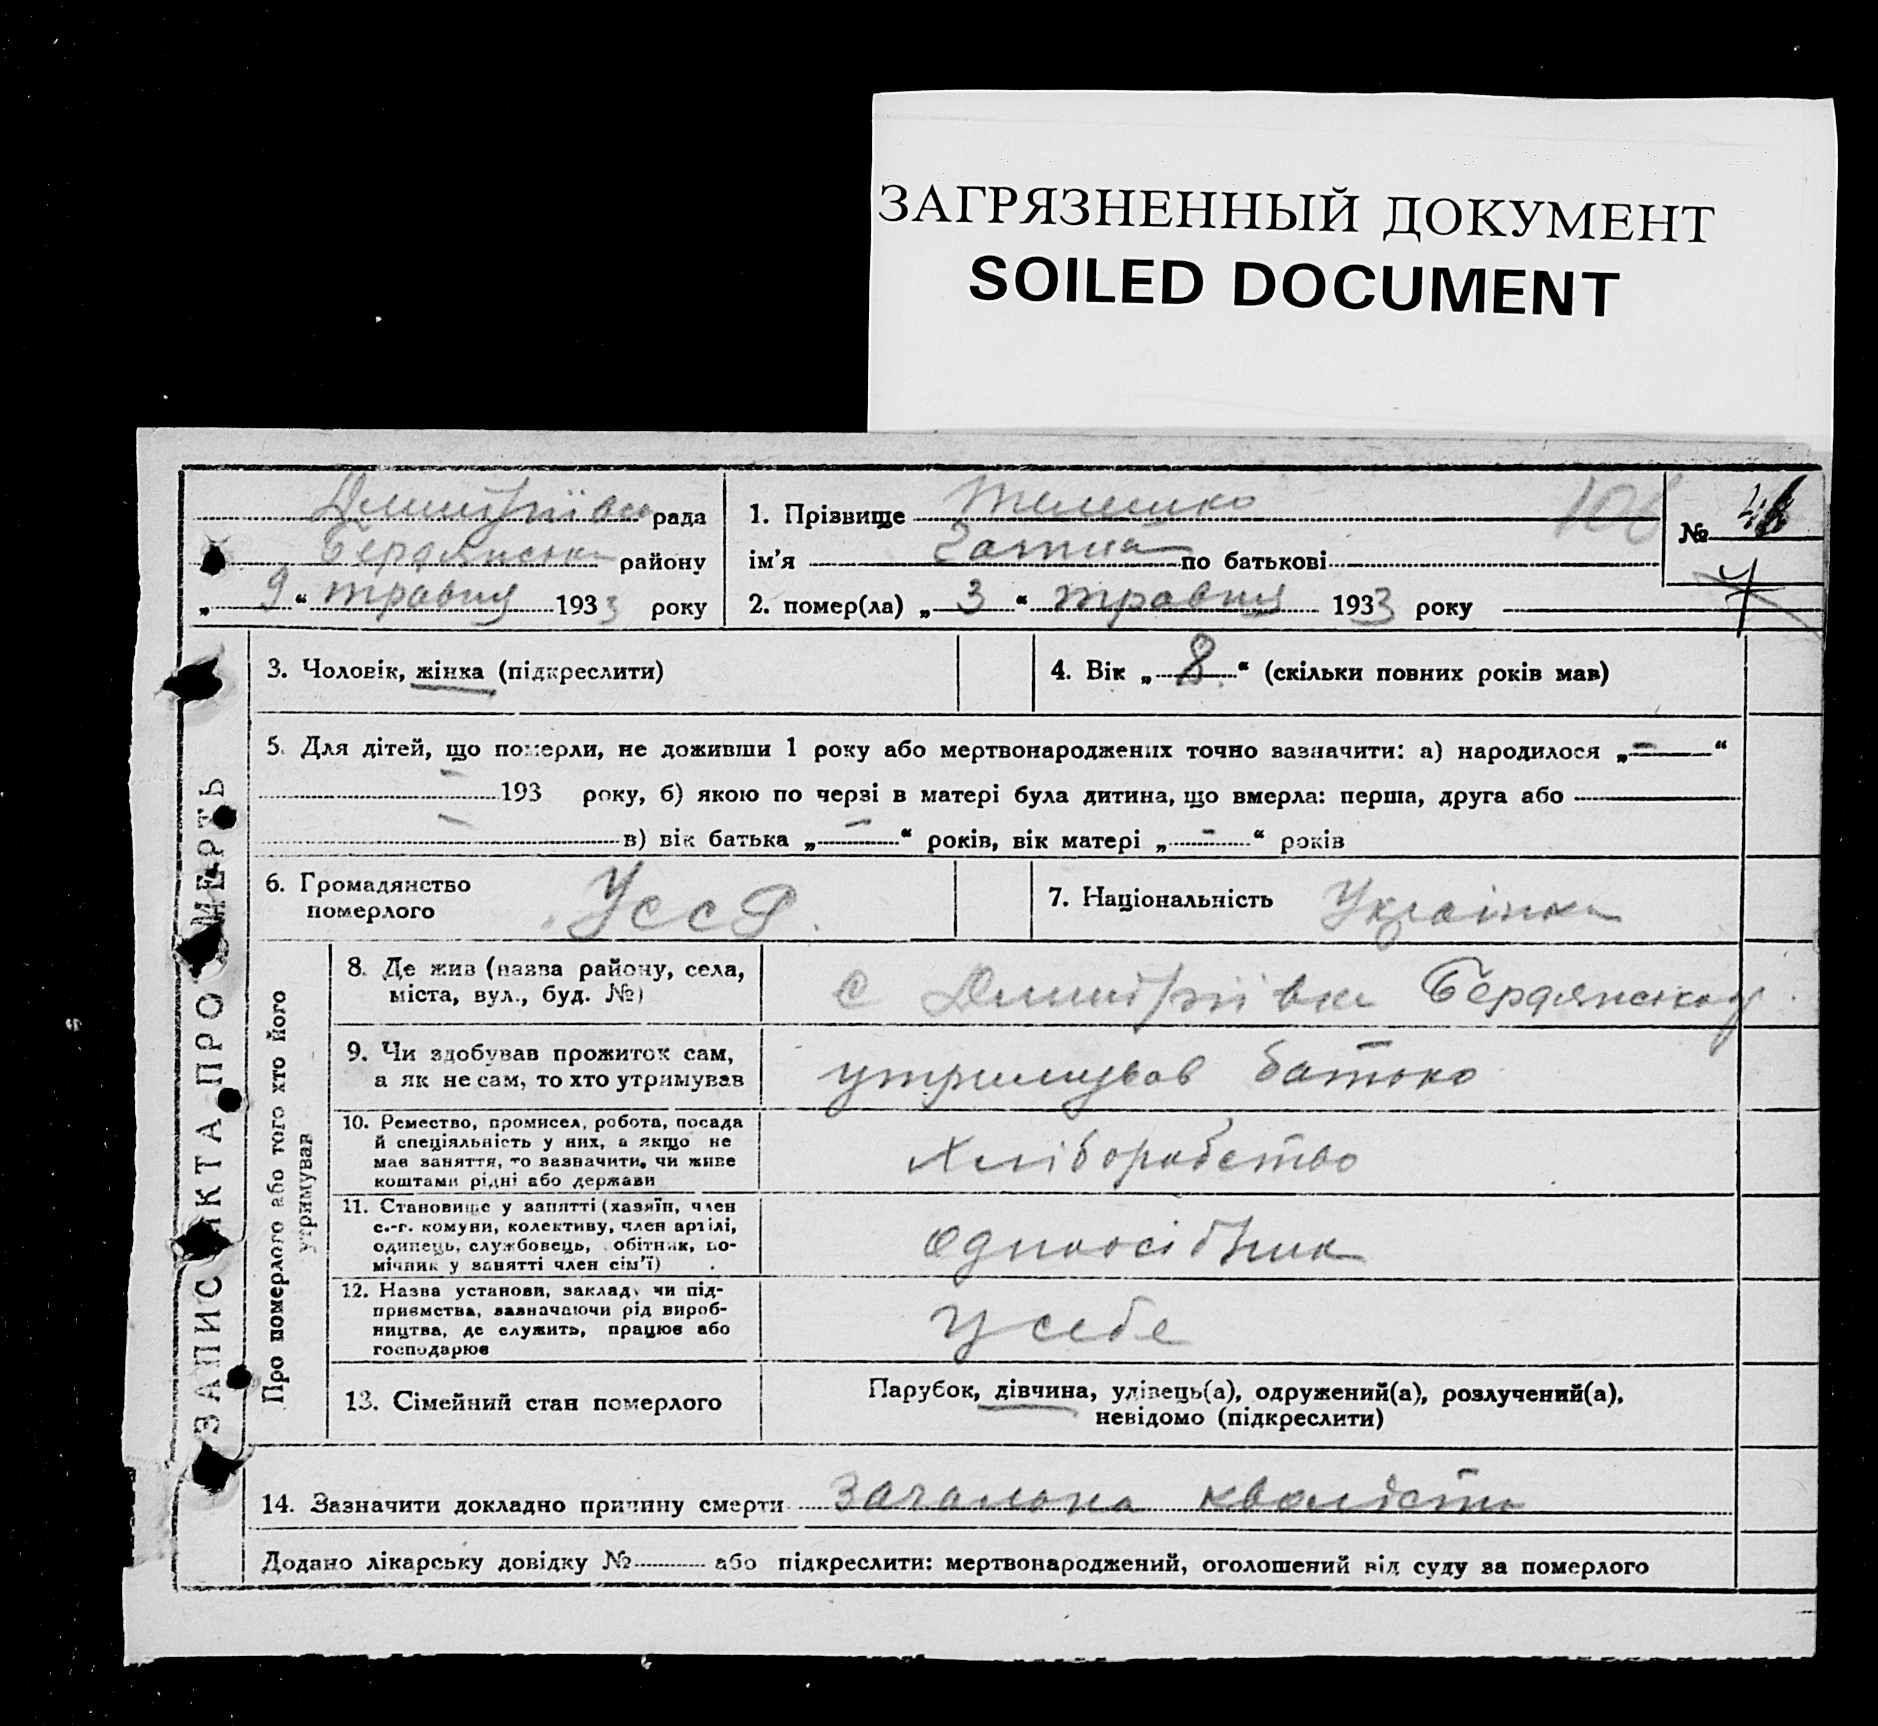 ЗАГРЯЗНЕННЫЙ ДОКУМЕНТ
SOILED DOCUMENT
Дмитріївка рада
Бердянська району
„ 9 “ травня 1933 року
1. Прізвище
ім’я по батькові
2. помер(ла) „ 3 “ травня 1933 року
№
ЗАПИС АКТА ПРО СМЕРТЬ
3. Чоловік, жінка (підкреслити)
4. Вік „ 8 “ (скільки повних років мав)
5. Для дітей, що померли, не доживши 1 року або мертвонароджених точно зазначити: а) народилося „ – “
– 193 року, б) якою по черзі в матері була дитина, що вмерла: перша, друга або
– в) вік батька „ – “ років, вік матері „ – “ років
6. Громадянство
померлого
УССР.
7. Національність Українка
Про померлого або того хто його
утримував
8. Де жив (назва району, села,
міста, вул., буд. №)
с Дмитріївка Бердянського
9. Чи здобував прожиток сам,
а як не сам, то хто утримував
утримував батько
10. Ремество, промисел, робота, посада
й спеціяльність у них, а якщо не
мав заняття, то зазначити, чи живе
коштами рідні або держави
Хліборобство
11. Становище у занятті (хазяїн, член
с.-г. комуни, колективу, член артілі,
одинець, службовець, робітник, по-
мічник у занятті член сім’ї)
одноосібник
12. Назва установи, закладу чи під-
приємства, зазначаючи рід вироб-
ництва, де служить, працює або
господарює
у себе
13. Сімейний стан померлого
Парубок, дівчина, удівець(а), одружений(а), розлучений(а),
невідомо (підкреслити)
14. Зазначити докладно причину смерти загальна квалість
Додано лікарську довідку № або підкреслити: мертвонароджений, оголошений від суду за померлого